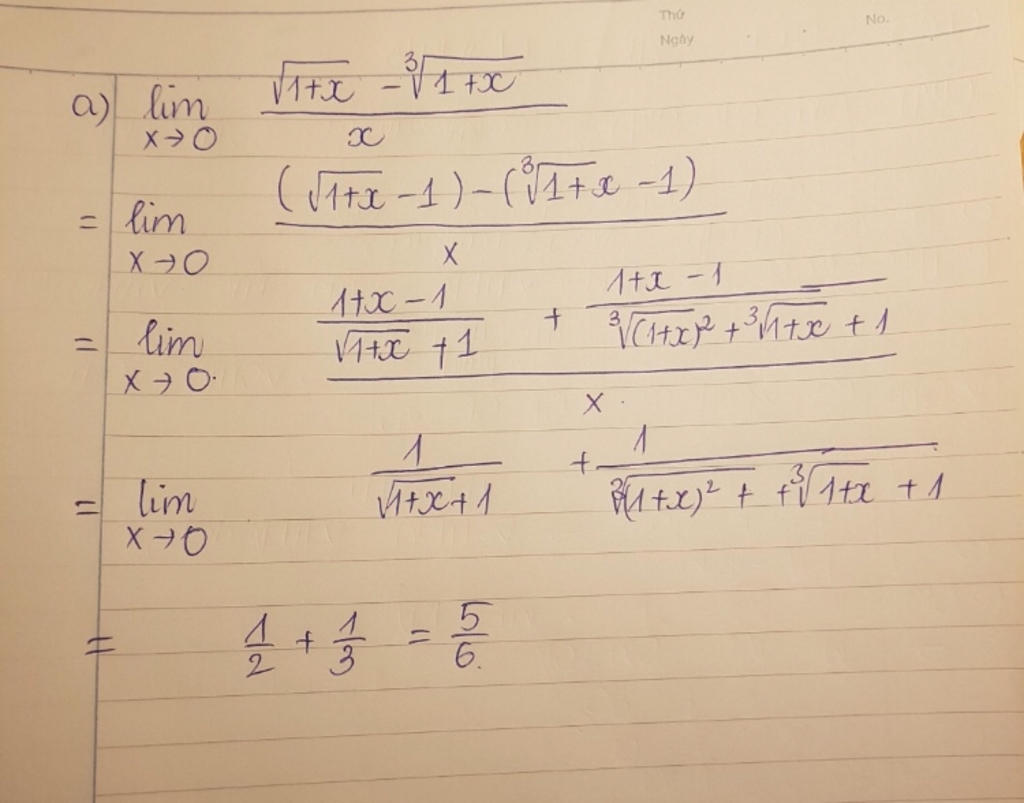 Thứ No.
Ngày
a) lim x→0 (√(1+x) - ∛(1+x)) / x
= lim x→0 ((√(1+x) - 1) - (∛(1+x) - 1)) / x
= lim x→0 ((1+x-1)/(√(1+x) + 1) + (1+x-1)/(∛(1+x)² + ∛(1+x) + 1)) / x
= lim x→0 1/(√(1+x) + 1) + 1/(∛(1+x)² + + ∛(1+x) + 1)
= 1/2 + 1/3 = 5/6.